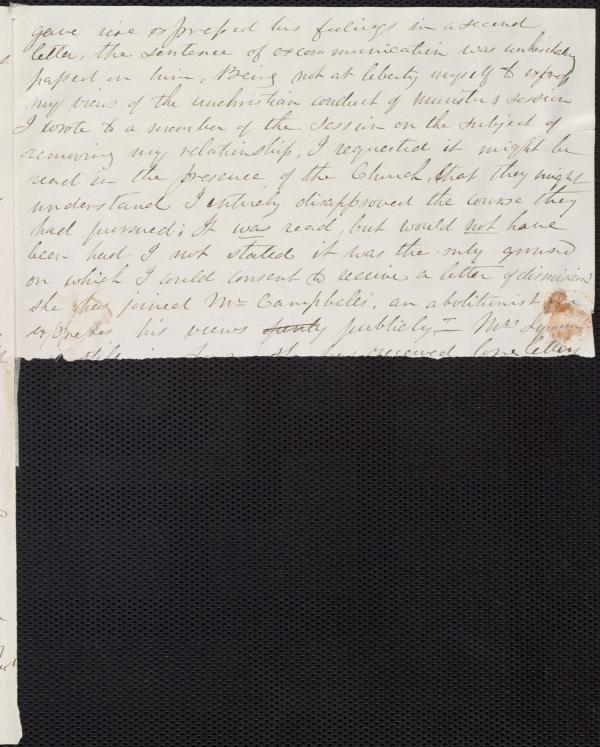 gave rise expressed his feelings in a second
letter, the sentence of excommunication was unhesitatingly
passed on him, Being not at liberty myself to express
my views of the unchristian conduct of minister & session
I wrote to a member of the session on the subject of
removing my relationship, I requested it might be
read in the presence of the Church, that they might
understand I entirely disapproved the course they
had pursued; It was read, but would not have
been had I not stated it was the only ground
on which I could consent to receive a letter of dismission
she has joined Mr Campbells, an abolitionist
expresses his views publicly – Mrs
has received love letters